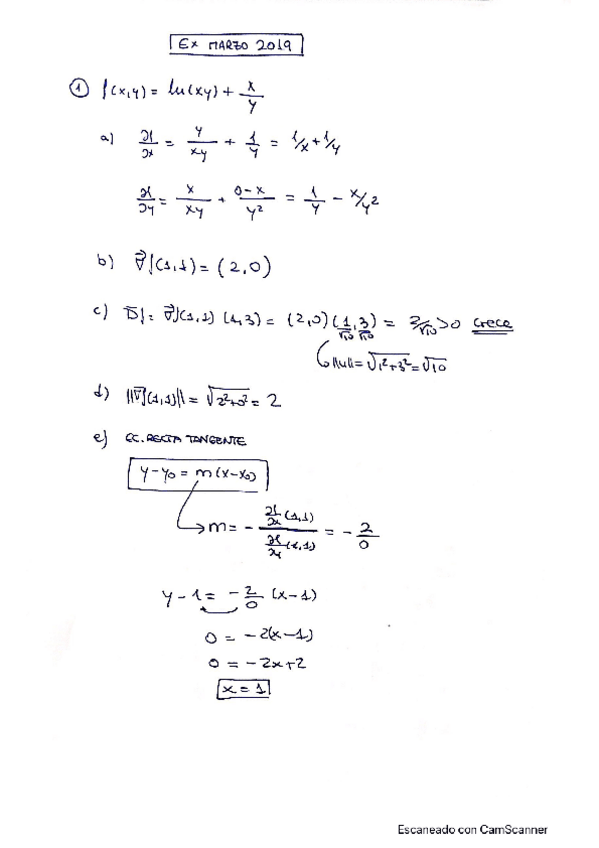 EX MARZO 2019
① f(x,y) = ln(xy) + x/y
a) ∂f/∂x = y/xy + 1/y = 1/x + 1/y
∂f/∂y = x/xy + (0-x)/y² = 1/y - x/y²
b) ∇⃗f(1,1) = (2,0)
c) Df = ∇⃗f(1,1) (1,3) = (2,0) (1/√10, 3/√10) = 2/√10 > 0 crece
||u|| = √1²+3² = √10
d) ||∇⃗f(1,1)|| = √2²+0² = 2
e) EC. RECTA TANGENTE
y-y0 = m(x-x0)
m = - ∂f/∂x (1,1) / ∂f/∂y (1,1) = - 2/0
y-1 = -2/0 (x-1)
0 = -2(x-1)
0 = -2x+2
x = 1
Escaneado con CamScanner